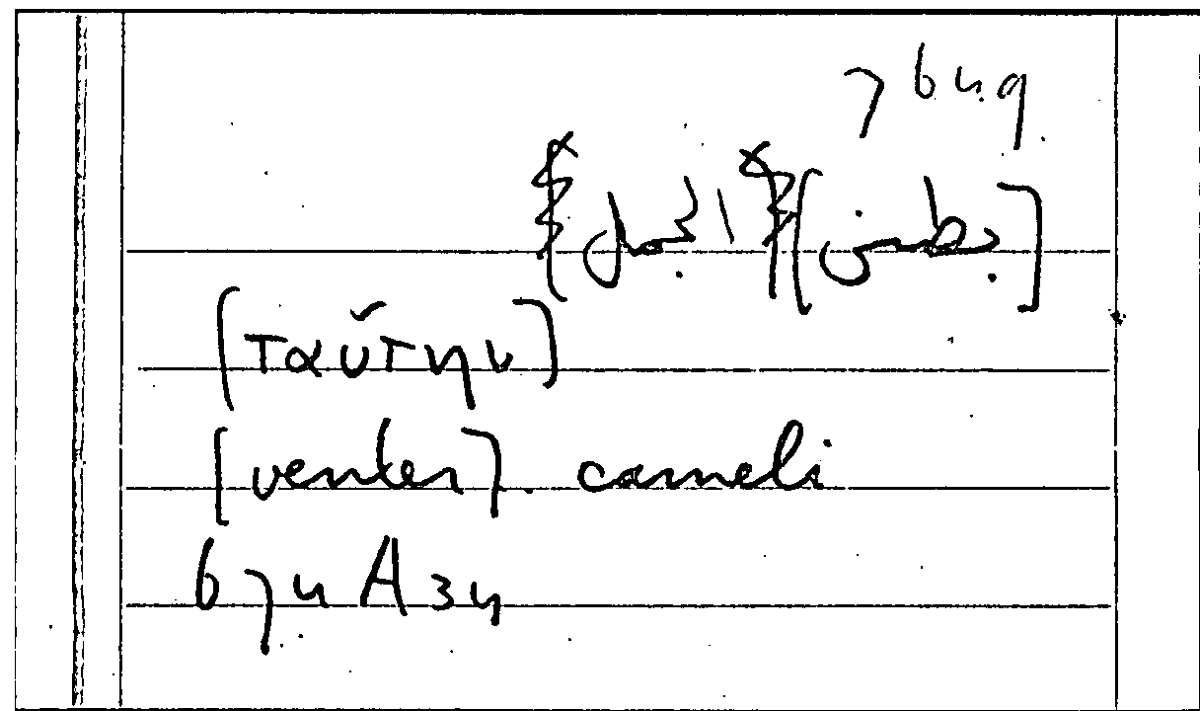 764.9
[بطن] [الجمل]
[ταύτην]
[venter]. cameli
674 A 34